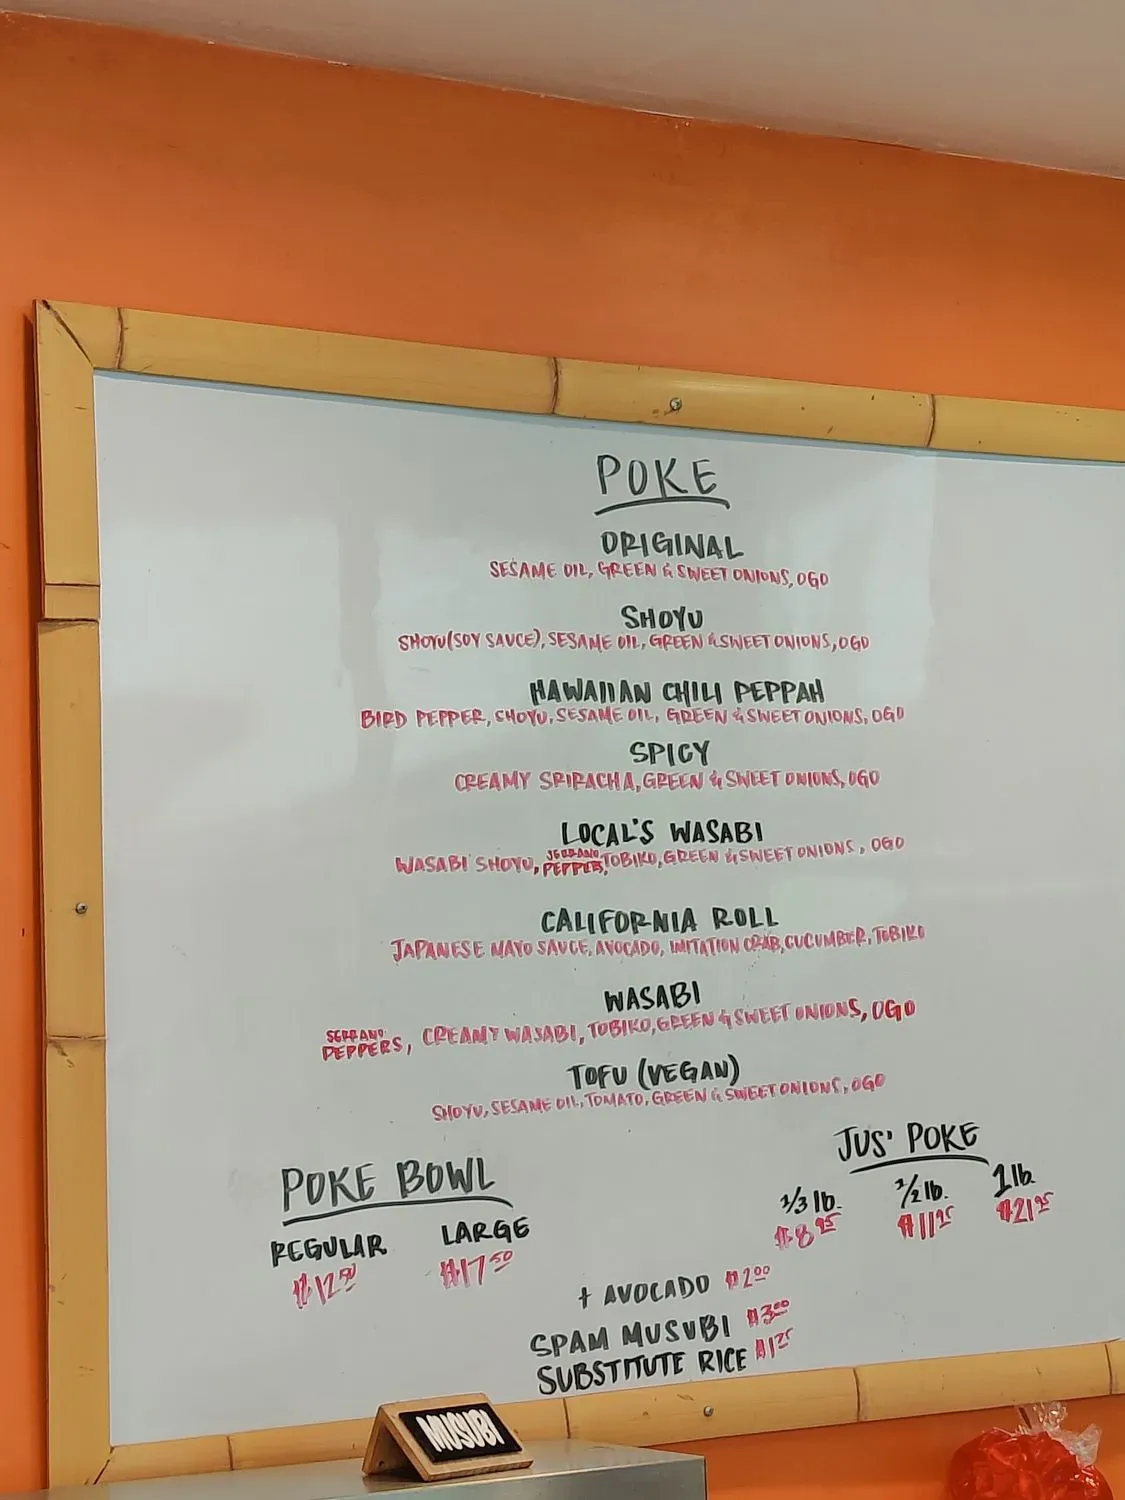 POKE
ORIGINAL
SESAME OIL, GREEN & SWEET ONIONS, OGO
SHOYU
SHOYU (SOY SAUCE), SESAME OIL, GREEN & SWEET ONIONS, OGO
HAWAIIAN CHILI PEPPAH
BIRD PEPPER, SHOYU, SESAME OIL, GREEN & SWEET ONIONS, OGO
SPICY
CREAMY SRIRACHA, GREEN & SWEET ONIONS, OGO
LOCAL'S WASABI
WASABI SHOYU, SERRANO PEPPER, TOBIKO, GREEN & SWEET ONIONS, OGO
CALIFORNIA ROLL
JAPANESE MAYO SAUCE, AVOCADO, IMITATION CRAB, CUCUMBER, TOBIKO
WASABI
SERRANO PEPPERS, CREAMY WASABI, TOBIKO, GREEN & SWEET ONIONS, OGO
TOFU (VEGAN)
SHOYU, SESAME OIL, TOMATO, GREEN & SWEET ONIONS, OGO
POKE BOWL
REGULAR LARGE
$12.50 $17.50
JUS' POKE
1/3 lb. 1/2 lb. 1 lb.
$8.25 $11.95 $21.95
+ AVOCADO $2.00
SPAM MUSUBI $3.00
SUBSTITUTE RICE $1.25
MUSUBI